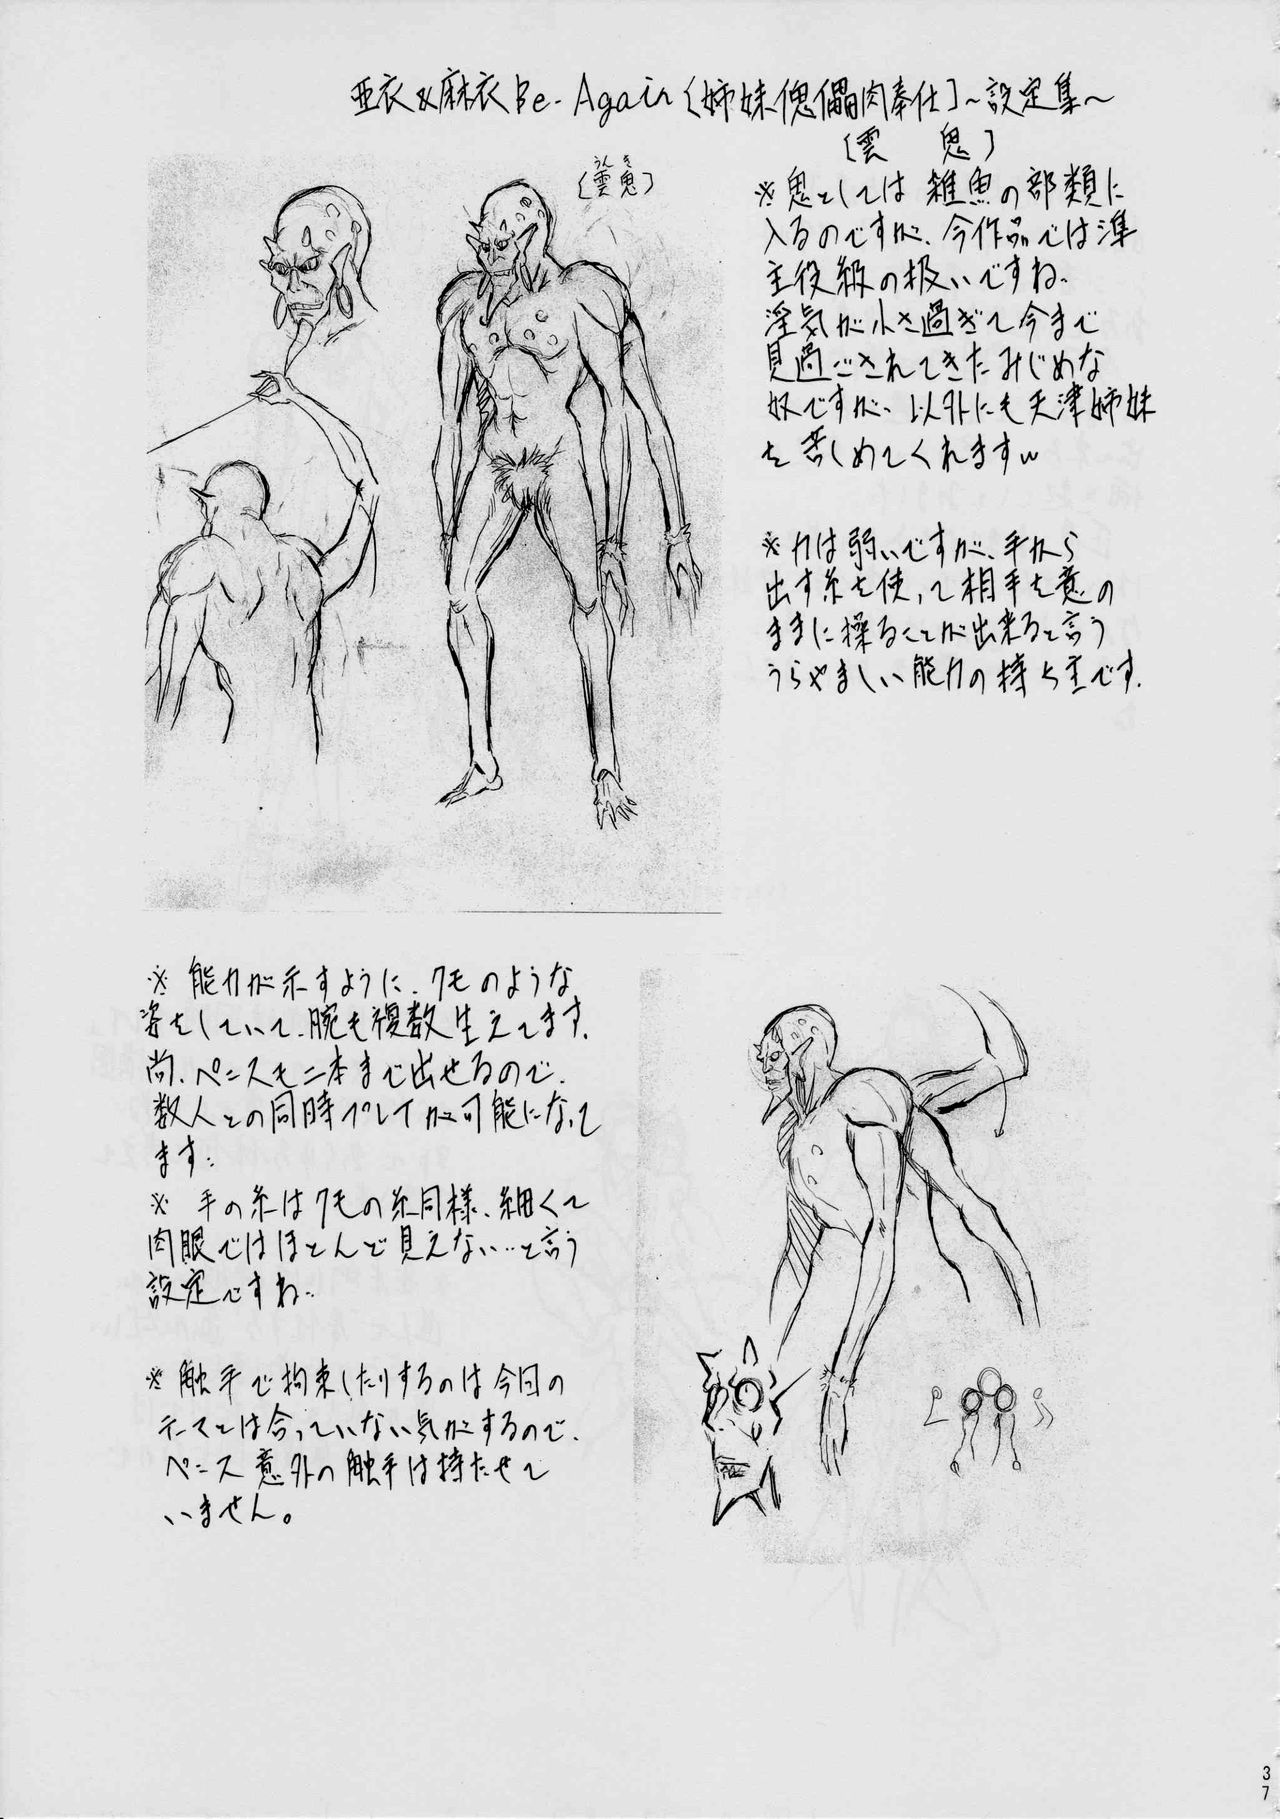 亜衣&麻衣Be-Again〔姉妹傀儡肉奉仕〕~設定集~
〔雲鬼〕
うんき
〔雲鬼〕
※鬼としては雑魚の部類に
入るのですが、今作品では準
主役級の扱いですね。
淫気が小さ過ぎて今まで
見過ごされてきたみじめな
奴ですが、以外にも天津姉妹
を苦しめてくれますw
※力は弱いですが、手から
出す糸を使って相手を意の
ままに操ることが出来ると言う
うらやましい能力の持ち主です。
※能力が示すように、クモのような
姿をしていて、腕も複数生えてます。
尚、ペニスも二本まで出せるので、
数人との同時プレイが可能になって
ます。
※手の糸はクモの糸同様、細くて
肉眼ではほとんど見えない…と言う
設定ですね。
※触手で拘束したりするのは今回の
テーマとは合っていない気がするので、
ペニス意外の触手は持たせて
いません。
37